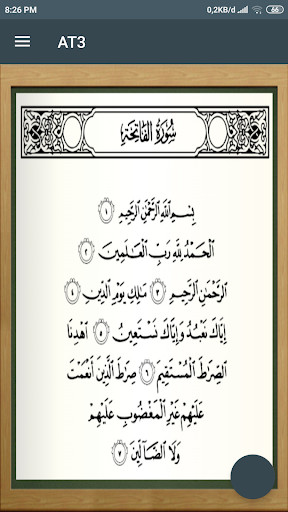 8:26 PM 0,2KB/d 66
AT3
سُورَةُ الفَاتِحَةِ
بِسْمِ ٱللَّهِ ٱلرَّحْمَٰنِ ٱلرَّحِيمِ ١
ٱلْحَمْدُ لِلَّهِ رَبِّ ٱلْعَٰلَمِينَ ٢
ٱلرَّحْمَٰنِ ٱلرَّحِيمِ ٣ مَٰلِكِ يَوْمِ ٱلدِّينِ ٤
إِيَّاكَ نَعْبُدُ وَإِيَّاكَ نَسْتَعِينُ ٥ ٱهْدِنَا
ٱلصِّرَٰطَ ٱلْمُسْتَقِيمَ ٦ صِرَٰطَ ٱلَّذِينَ أَنْعَمْتَ
عَلَيْهِمْ غَيْرِ ٱلْمَغْضُوبِ عَلَيْهِمْ
وَلَا ٱلضَّآلِّينَ ٧